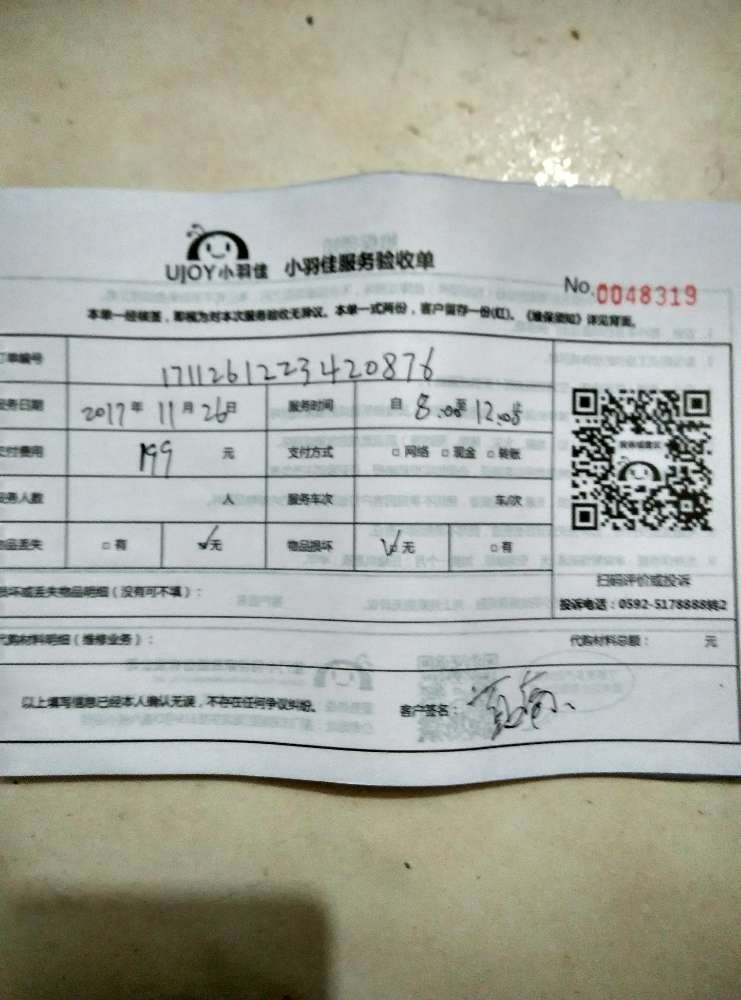 UJOY小羽佳 小羽佳服务验收单
No.0048319
本单一经核签,即视为对本次服务验收无异议。本单一式两份,客户留存一份(红)。《维保须知》详见背面。
订单编号 1711261223420876
服务日期 2017年11月26日 服务时间 自8:00至12:05止
支付费用 199元 支付方式 □网络 □现金 □转账
服务人数 人 服务车次 车/次
物品丢失 □有 ✓无 物品损坏 ✓无 □有
扫码评价或投诉
损坏或丢失物品明细(没有可不填):
投诉电话:0592-5178888转2
代购材料明细(维修业务): 代购材料总额: 元
以上填写信息已经本人确认无误,不存在任何争议纠纷。 客户签名: